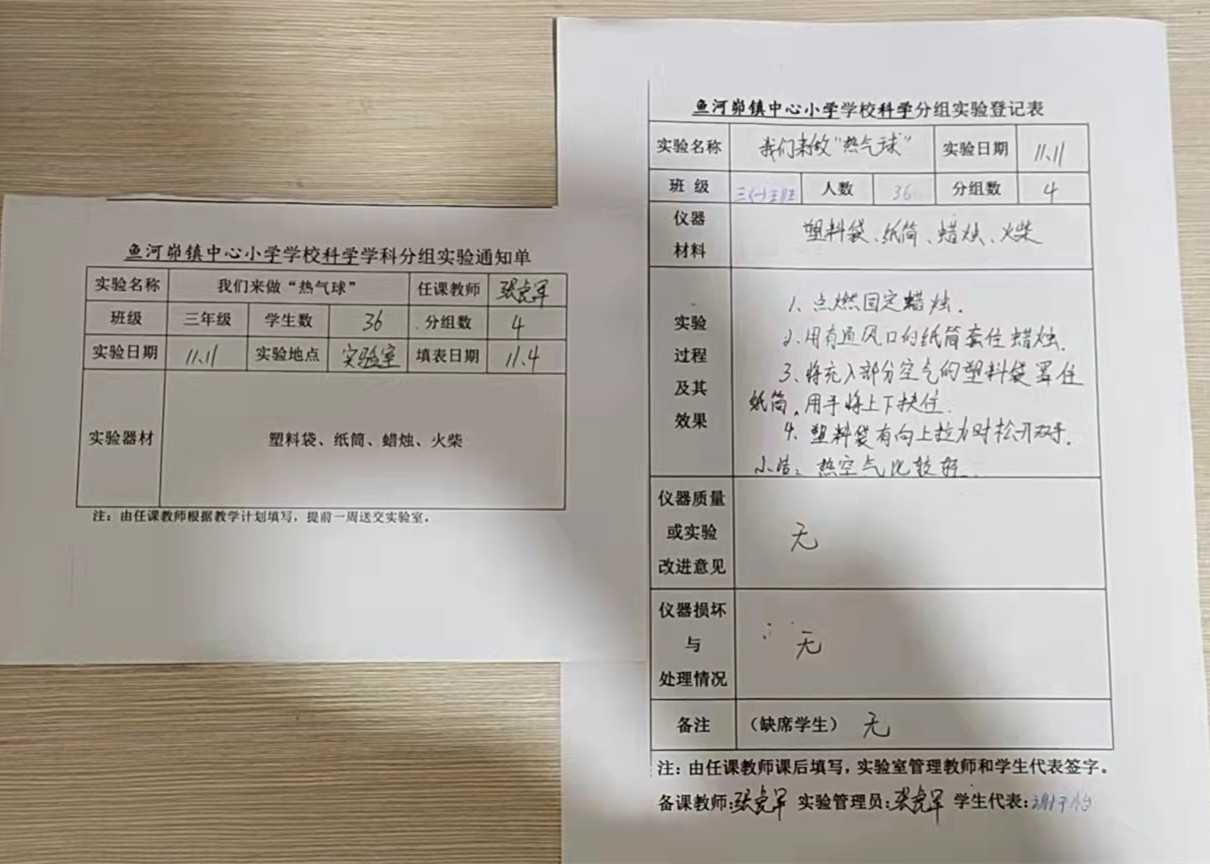 鱼河峁镇中心小学学校科学学科分组实验通知单
实验名称 我们来做“热气球” 任课教师 张虎军
班级 三年级 学生数 36 分组数 4
实验日期 11.11 实验地点 实验室 填表日期 11.4
实验器材 塑料袋、纸筒、蜡烛、火柴
注：由任课教师根据教学计划填写，提前一周送交实验室。
鱼河峁镇中心小学学校科学分组实验登记表
实验名称 我们来做“热气球” 实验日期 11.11
班 级 三(一)班 人数 36 分组数 4
仪器
材料
塑料袋、纸筒、蜡烛、火柴
实验
过程
及其
效果
1、点燃固定蜡烛.
2、用有通风口的纸筒套住蜡烛.
3、将充入部分空气的塑料袋罩住
纸筒,用手将上下扶住.
4、塑料袋有向上拉力时松开双手.
小结：热空气比较轻.
仪器质量
或实验
改进意见
无
仪器损坏
与
处理情况
无
备注 （缺席学生） 无
注：由任课教师课后填写，实验室管理教师和学生代表签字。
备课教师:张虎军 实验管理员:张虎军 学生代表: